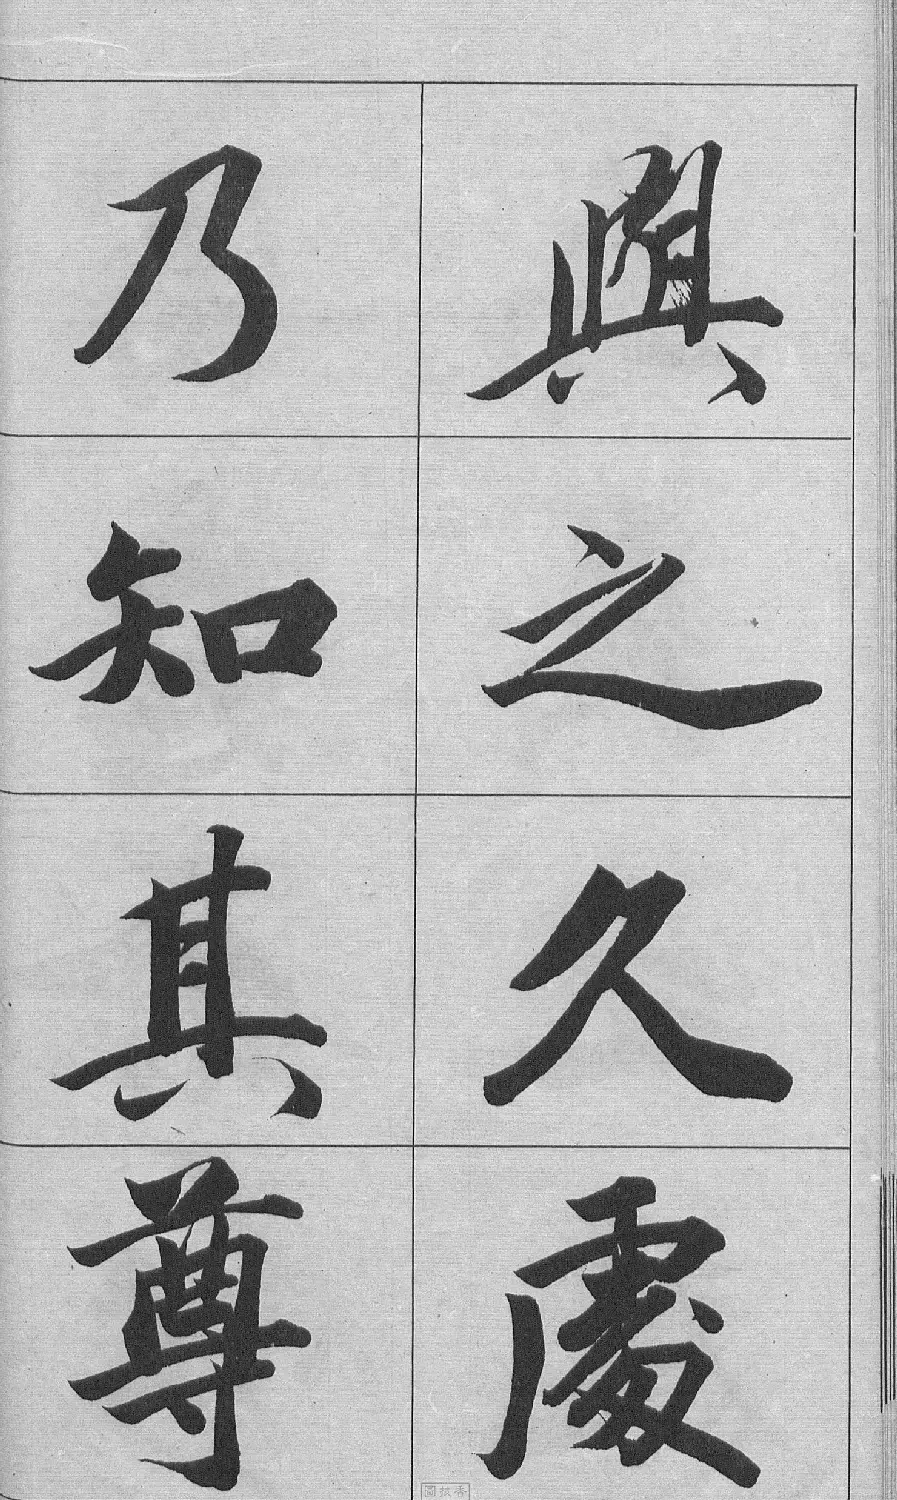 與之久處
乃知其尊